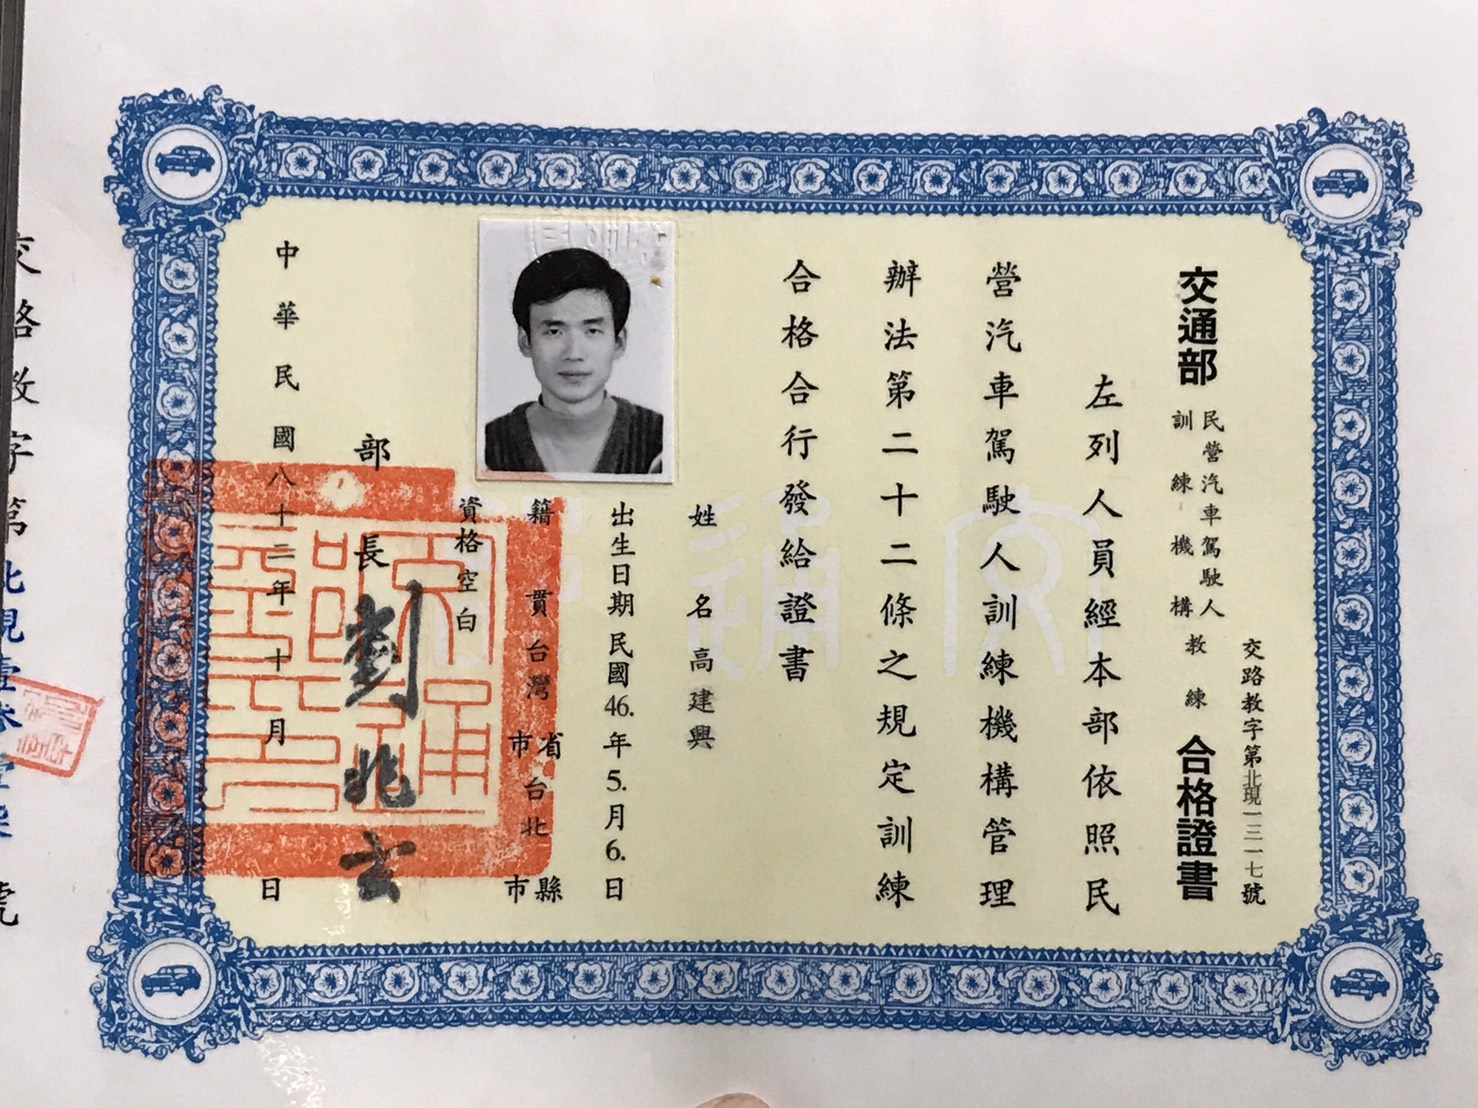 交路教字第北現一三一七號
交通部民營汽車駕駛人訓練機構教練合格證書
左列人員經本部依照民
營汽車駕駛人訓練機構管理
辦法第二十二條之規定訓練
合格合行發給證書
姓名高建興
出生日期民國46.年5.月6.日
籍貫台灣省市台北縣市
資格空白
部長劉兆玄
中華民國八十二年十月 日
交路教字第北現壹
號